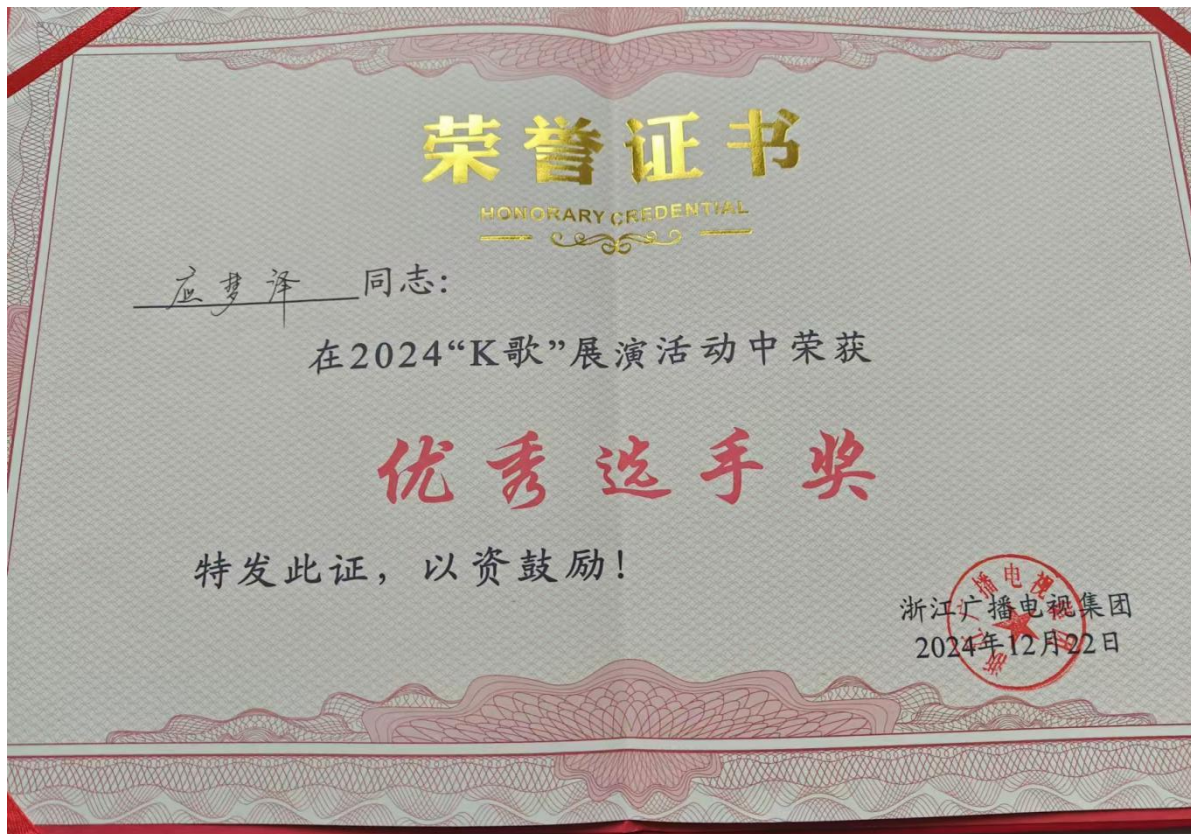 荣誉证书
HONORARY CREDENTIAL
应梦泽 同志:
在2024“K歌”展演活动中荣获
优秀选手奖
特发此证，以资鼓励!
浙江广播电视集团
2024年12月22日
浙江广播电视集团